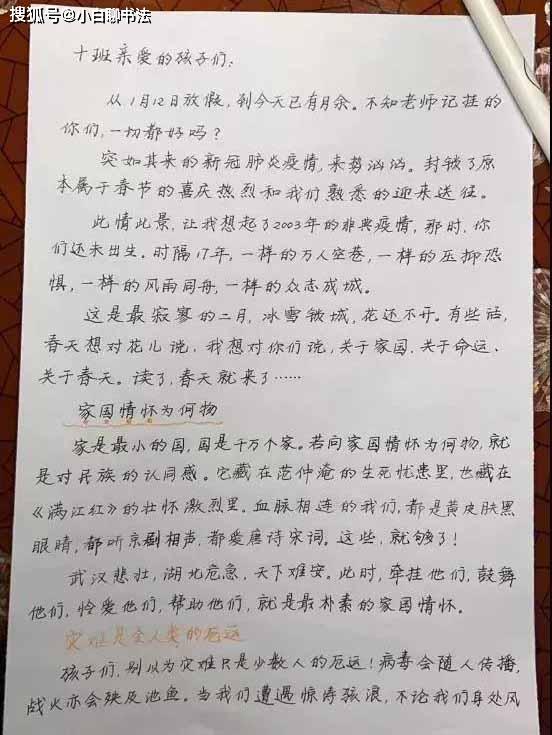 搜狐号@小白聊书法
十班亲爱的孩子们:
从1月12日放假,到今天已有月余。不知老师记挂的
你们,一切都好吗?
突如其来的新冠肺炎疫情,来势汹汹。封锁了原
本属于春节的喜庆热烈和我们熟悉的迎来送往。
此情此景,让我想起了2003年的非典疫情,那时,你
们还未出生。时隔17年,一样的万人空巷,一样的压抑恐
惧,一样的风雨同舟,一样的众志成城。
这是最寂寥的二月,冰雪锁城,花还不开。有些话,
春天想对花儿说,我想对你们说,关于家国,关于命运、
关于春天。读了,春天就来了……
家国情怀为何物
家是最小的国,国是千万个家。若问家国情怀为何物,就
是对民族的认同感。它藏在范仲淹的生死忧患里,也藏在
《满江红》的壮怀激烈里。血脉相连的我们,都是黄皮肤黑
眼睛,都听京剧相声,都爱唐诗宋词。这些,就够了!
武汉悲壮,湖北危急,天下难安。此时,牵挂他们,鼓舞
他们,怜爱他们,帮助他们,就是最朴素的家国情怀。
灾难是全人类的厄运
孩子们,别以为灾难只是少数人的厄运!病毒会随人传播,
战火亦会殃及池鱼。当我们遭遇惊涛骇浪,不论我们身处风